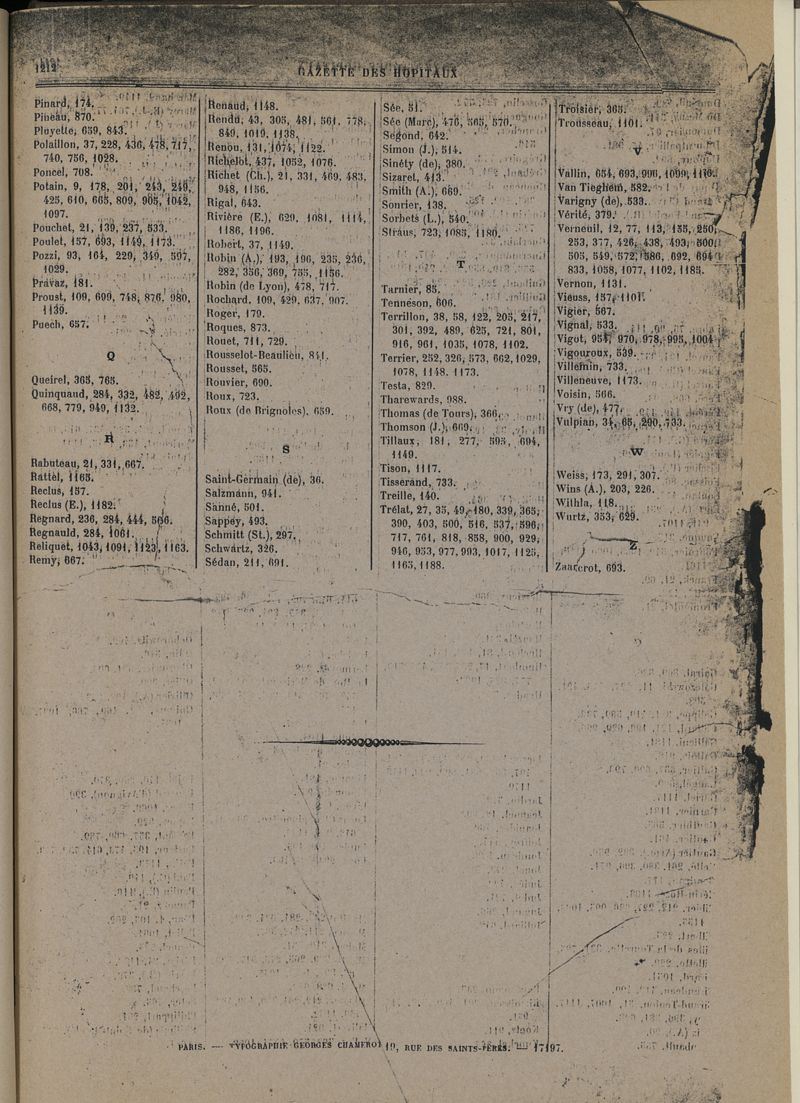 1212
GAZETTE DES HOPITAUX
Pinard, 174.
Pineau, 870.
Ployette, 659, 843.
Polaillon, 37, 228, 436, 478, 717,
740, 756, 1028.
Poncel, 708.
Potain, 9, 178, 201, 243, 249,
425, 610, 665, 809, 905, 1042,
1097.
Pouchet, 21, 139, 237, 533.
Poulet, 157, 693, 1149, 1173.
Pozzi, 93, 164, 229, 349, 597,
1029.
Pravaz, 181.
Proust, 109, 699, 748, 876, 980,
1139.
Puech, 657.
Q
Queirel, 365, 765.
Quinquaud, 284, 332, 482, 492,
668, 779, 949, 1132.
R
Rabuteau, 21, 331, 667.
Rattel, 1165.
Reclus, 157.
Reclus (E.), 1182.
Regnard, 236, 284, 444, 566.
Regnauld, 284, 1061.
Reliquet, 1043, 1091, 1123, 1163.
Remy, 667.
Renaud, 1148.
Rendu, 43, 305, 481, 561, 778,
849, 1019, 1138.
Renou, 131, 1074, 1122.
Richelot, 437, 1052, 1076.
Richet (Ch.), 21, 331, 469, 483,
948, 1156.
Rigal, 643.
Rivière (E.), 629, 1081, 1114,
1186, 1196.
Robert, 37, 1149.
Robin (A.), 193, 196, 235, 236,
282, 356, 369, 755, 1156.
Robin (de Lyon), 478, 717.
Rochard, 109, 429, 637, 907.
Roger, 179.
Roques, 873.
Rouet, 711, 729.
Rousselot-Beaulieu, 841.
Rousset, 565.
Rouvier, 690.
Roux, 723.
Roux (de Brignoles), 659.
S
Saint-Germain (de), 36.
Salzmann, 941.
Sanné, 501.
Sappey, 493.
Schmitt (St.), 297.
Schwartz, 326.
Sédan, 211, 691.
Sée, 51.
Sée (Marc), 476, 565, 570.
Segond, 642.
Simon (J.), 514.
Sinéty (de), 380.
Sizaret, 413.
Smith (A.), 669.
Sonrier, 138.
Sorbets (L.), 540.
Straus, 723, 1085, 1180.
T
Tarnier, 85.
Tenneson, 606.
Terrillon, 38, 58, 122, 205, 217,
301, 392, 489, 625, 721, 801,
916, 961, 1035, 1078, 1102.
Terrier, 252, 326, 573, 662, 1029,
1078, 1148, 1173.
Testa, 829.
Tharewards, 988.
Thomas (de Tours), 366.
Thomson (J.), 669.
Tillaux, 181, 277, 595, 694,
1149.
Tison, 1117.
Tisserand, 733.
Treille, 140.
Trélat, 27, 35, 49, 180, 339, 365,
390, 403, 500, 516, 537, 596,
717, 761, 818, 858, 900, 929,
946, 953, 977, 993, 1017, 1125,
1165, 1188.
Troisier, 365.
Trousseau, 1101.
V
Vallin, 654, 693, 996, 1099, 1116.
Van Tieghem, 582.
Varigny (de), 533.
Vérité, 379.
Verneuil, 12, 77, 113, 155, 250,
253, 377, 426, 438, 493, 500,
505, 549, 572, 586, 692, 694,
833, 1058, 1077, 1102, 1185.
Vernon, 1131.
Vieuss, 157, 1101.
Vigier, 567.
Vignal, 533.
Vigot, 954, 970, 978, 995, 1004.
Vigouroux, 539.
Villemin, 733.
Villeneuve, 1173.
Voisin, 566.
Vry (de), 477.
Vulpian, 34, 65, 200, 733.
W
Weiss, 173, 291, 307.
Wins (A.), 203, 226.
Withla, 118.
Wurtz, 353, 629.
Z
Zancerot, 693.
PARIS. — TYPOGRAPHIE GEORGES CHAMEROT 19, RUE DES SAINTS-PÈRES. — 17197.